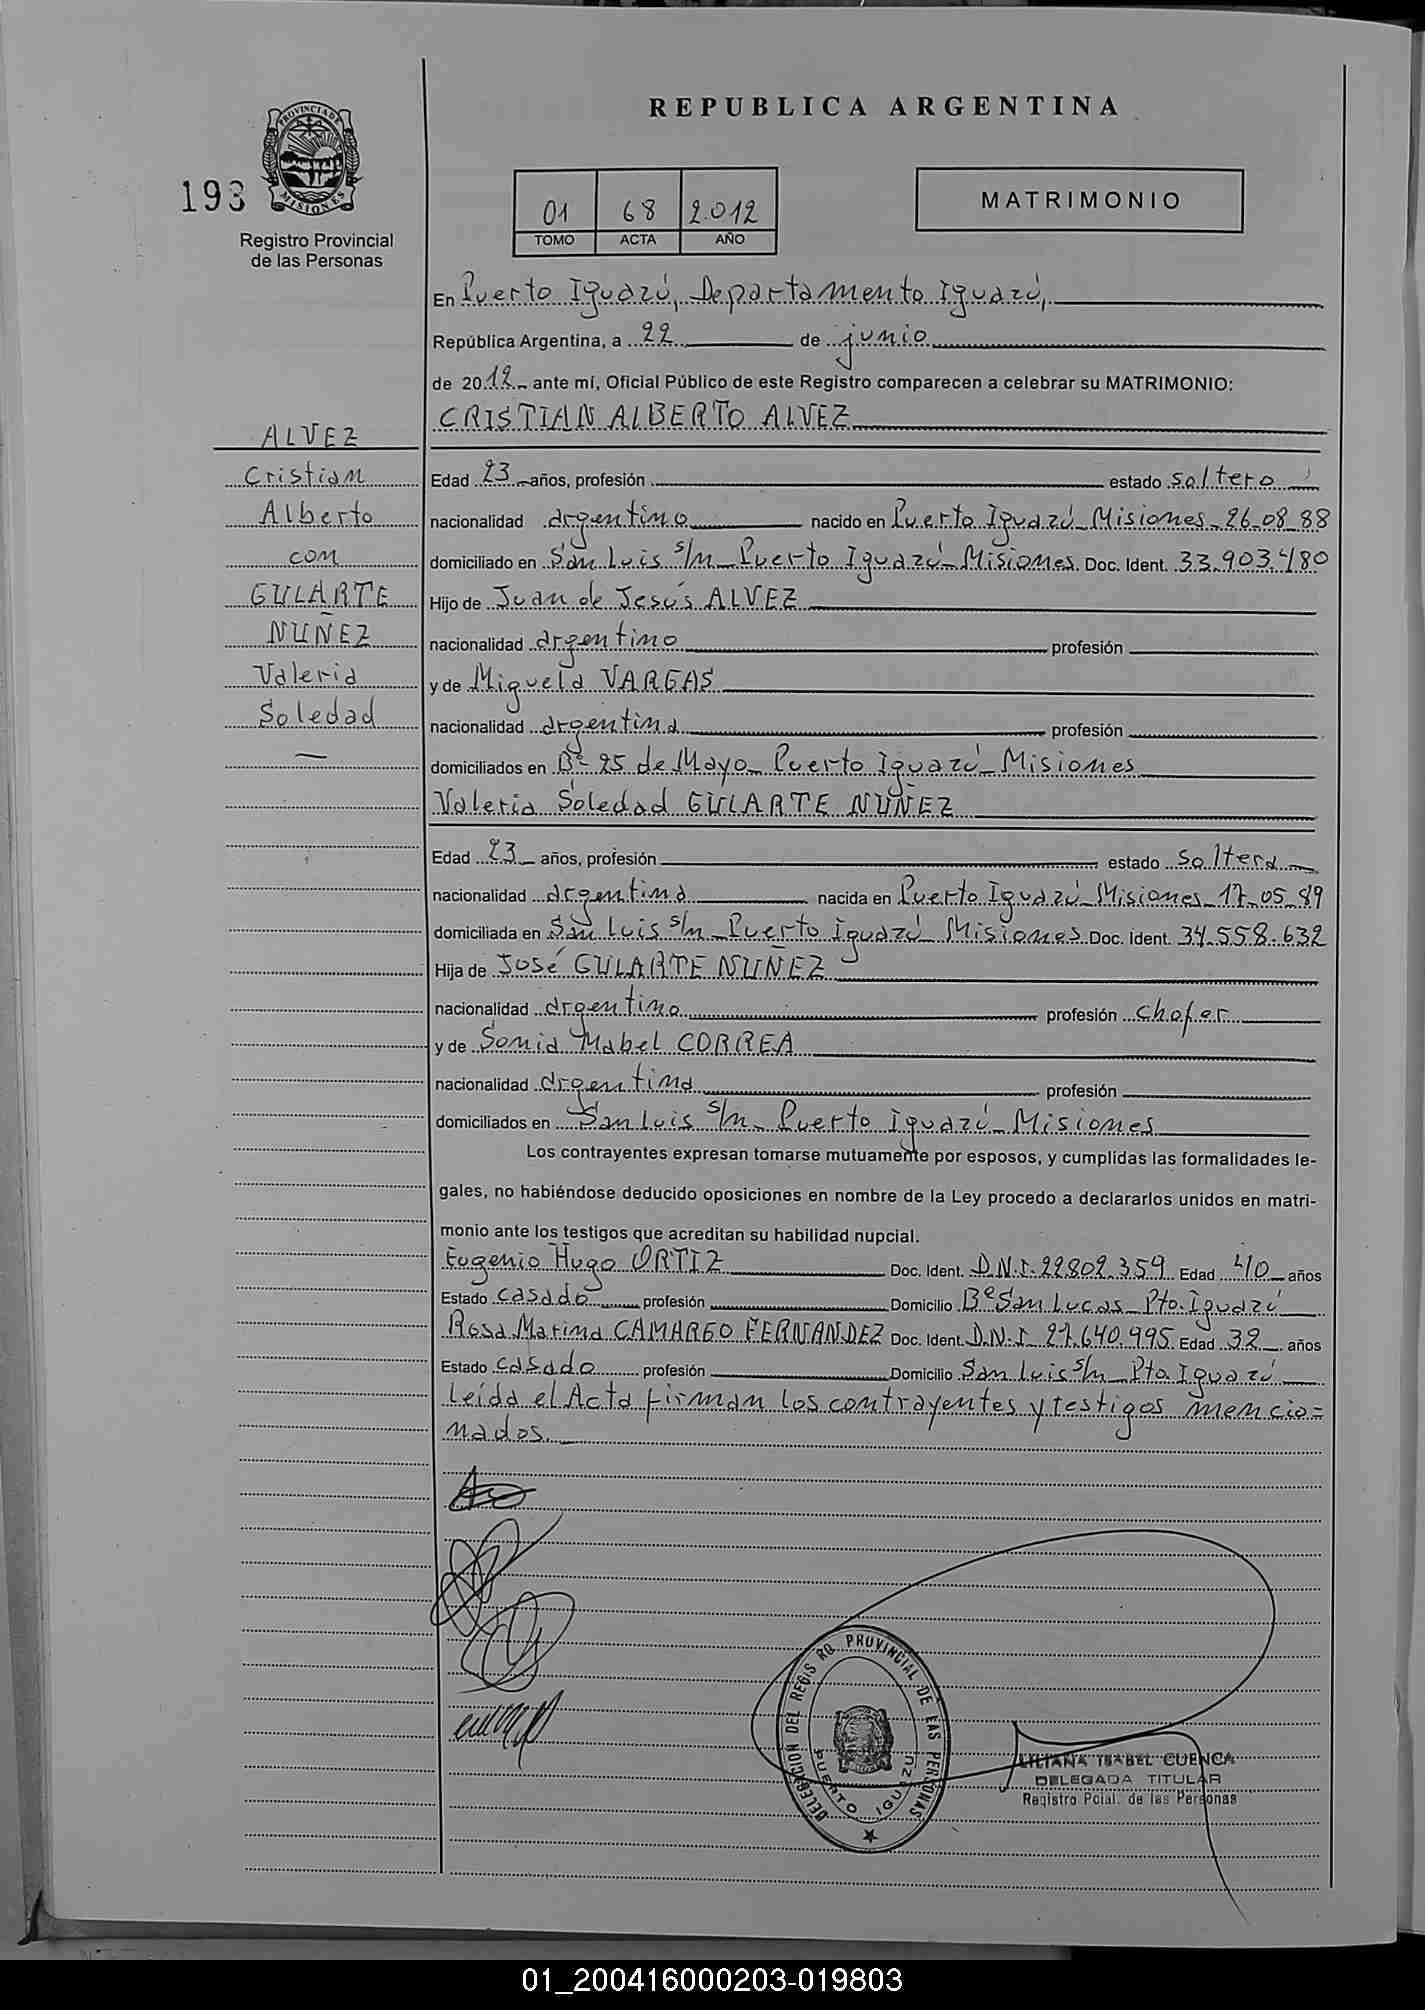 REPUBLICA ARGENTINA
PROVINCIA DE MISIONES
193
Registro Provincial
de las Personas
01 68 2.012
TOMO ACTA AÑO
MATRIMONIO
En Puerto Iguazú, Departamento Iguazú,
República Argentina, a 22 de junio
de 2012 ante mí, Oficial Público de este Registro comparecen a celebrar su MATRIMONIO:
CRISTIAN ALBERTO ALVEZ
ALVEZ
Cristian
Alberto
con
GULARTE
NUÑEZ
Valeria
Soledad
Edad 23 años, profesión estado soltero
nacionalidad argentino nacido en Puerto Iguazú Misiones 26-08-88
domiciliado en San Luis s/n Puerto Iguazú Misiones Doc. Ident. 33.903.480
Hijo de Juan de Jesús ALVEZ
nacionalidad argentino profesión
y de Miguela VARGAS
nacionalidad argentina profesión
domiciliados en Bº 25 de Mayo Puerto Iguazú Misiones
Valeria Soledad GULARTE NUÑEZ
Edad 23 años, profesión estado soltera
nacionalidad argentina nacida en Puerto Iguazú Misiones 17-05-89
domiciliada en San Luis s/n Puerto Iguazú Misiones Doc. Ident. 34.558.632
Hija de José GULARTE NUÑEZ
nacionalidad argentino profesión chofer
y de Sonia Mabel CORREA
nacionalidad argentina profesión
domiciliados en San Luis s/n Puerto Iguazú Misiones
Los contrayentes expresan tomarse mutuamente por esposos, y cumplidas las formalidades le-
gales, no habiéndose deducido oposiciones en nombre de la Ley procedo a declararlos unidos en matri-
monio ante los testigos que acreditan su habilidad nupcial.
Eugenio Hugo ORTIZ Doc. Ident. D.N.I. 22.802.359 Edad 40 años
Estado casado profesión Domicilio Bº San Lucas Pto. Iguazú
Rosa Marina CAMARGO FERNANDEZ Doc. Ident. D.N.I. 27.640.995 Edad 32 años
Estado casado profesión Domicilio San Luis s/n Pto. Iguazú
Leída el Acta firman los contrayentes y testigos mencio=
nados.
DELEGACION DEL REGISTRO PROVINCIAL DE LAS PERSONAS
PUERTO IGUAZU
LILIANA ISABEL CUENCA
DELEGADA TITULAR
Registro Pcial. de las Personas
01_200416000203-019803